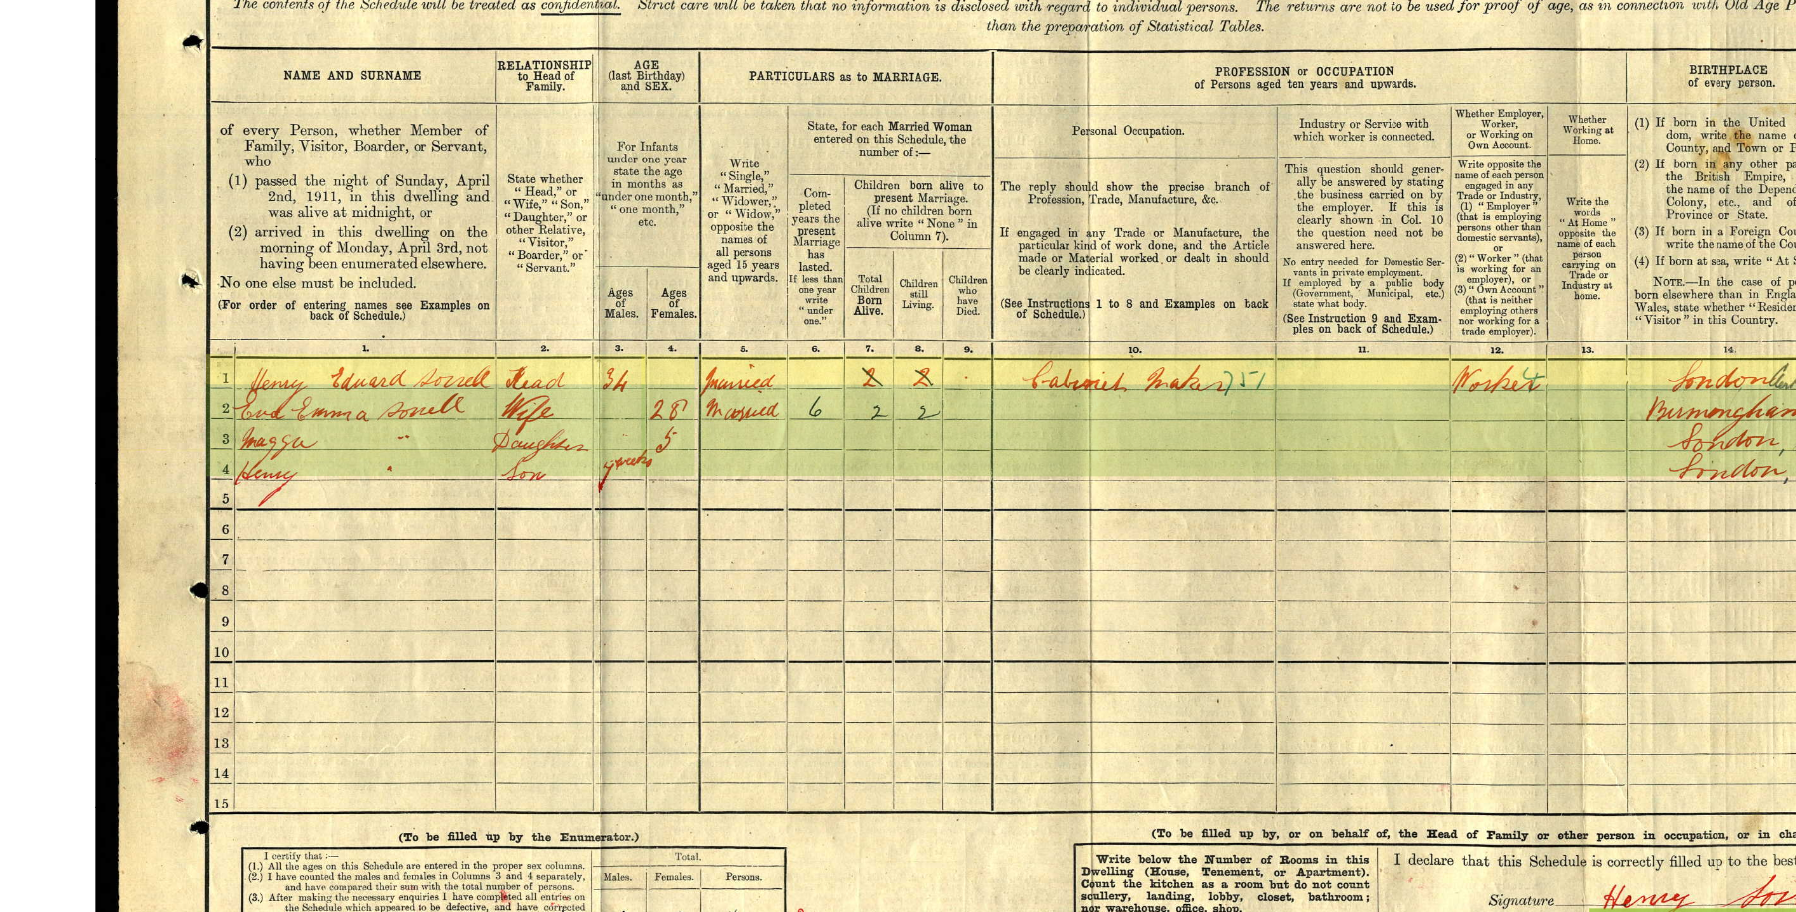 The contents of the Schedule will be treated as confidential. Strict care will be taken that no information is disclosed with regard to individual persons. The returns are not to be used for proof of age, as in connection with Old Age P
than the preparation of Statistical Tables.
NAME AND SURNAME
RELATIONSHIP
to Head of
Family.
AGE
(last Birthday)
and SEX.
PARTICULARS as to MARRIAGE.
PROFESSION or OCCUPATION
of Persons aged ten years and upwards.
BIRTHPLACE
of every person.
of every Person, whether Member of
Family, Visitor, Boarder, or Servant,
who
(1) passed the night of Sunday, April
2nd, 1911, in this dwelling and
was alive at midnight, or
(2) arrived in this dwelling on the
morning of Monday, April 3rd, not
having been enumerated elsewhere.
No one else must be included.
(For order of entering names see Examples on
back of Schedule.)
State whether
"Head," or
"Wife," "Son,"
"Daughter," or
other Relative,
"Visitor,"
"Boarder," or
"Servant."
For Infants
under one year
state the age
in months as
"under one month,"
"one month,"
etc.
Ages
of
Males.
Ages
of
Females.
Write
"Single,"
"Married,"
"Widower,"
or "Widow,"
opposite the
names of
all persons
aged 15 years
and upwards.
State, for each Married Woman
entered on this Schedule, the
number of:—
Com-
pleted
years the
present
Marriage
has
lasted.
If less than
one year
write
"under
one."
Children born alive to
present Marriage.
(If no children born
alive write "None" in
Column 7).
Total
Children
Born
Alive.
Children
still
Living.
Children
who
have
Died.
Personal Occupation.
The reply should show the precise branch of
Profession, Trade, Manufacture, &c.
If engaged in any Trade or Manufacture, the
particular kind of work done, and the Article
made or Material worked or dealt in should
be clearly indicated.
(See Instructions 1 to 8 and Examples on back
of Schedule.)
Industry or Service with
which worker is connected.
This question should gener-
ally be answered by stating
the business carried on by
the employer. If this is
clearly shown in Col. 10
the question need not be
answered here.
No entry needed for Domestic Ser-
vants in private employment.
If employed by a public body
(Government, Municipal, etc.)
state what body.
(See Instruction 9 and Exam-
ples on back of Schedule.)
Whether Employer,
Worker,
or Working on
Own Account.
Write opposite the
name of each person
engaged in any
Trade or Industry,
(1) "Employer"
(that is employing
persons other than
domestic servants),
or
(2) "Worker" (that
is working for an
employer), or
(3) "Own Account"
(that is neither
employing others
nor working for a
trade employer).
Whether
Working at
Home.
Write the
words
"At Home"
opposite the
name of each
person
carrying on
Trade or
Industry at
home.
(1) If born in the United
dom, write the name
County, and Town or
(2) If born in any other pa
the British Empire,
the name of the Depend
Colony, etc., and of
Province or State.
(3) If born in a Foreign Cou
write the name of the Cou
(4) If born at sea, write "At
NOTE.—In the case of pe
born elsewhere than in Engla
Wales, state whether "Reside
"Visitor" in this Country.
1. 2. 3. 4. 5. 6. 7. 8. 9. 10. 11. 12. 13. 14.
1 Henry Edward Sorrell Head 34 Married 2 2 Cabinet Maker 751 Worker London
2 Eva Emma Sorrell Wife 28 Married 6 2 2 Birmingham
3 Maggie " Daughter 5 London,
4 Henry " Son weeks London,
5
6
7
8
9
10
11
12
13
14
15
(To be filled up by the Enumerator.)
I certify that :—
(1.) All the ages on this Schedule are entered in the proper sex columns.
(2.) I have counted the males and females in Columns 3 and 4 separately,
and have compared their sum with the total number of persons.
(3.) After making the necessary enquiries I have completed all entries on
the Schedule which appeared to be defective, and have corrected
Total.
Males. Females. Persons.
(To be filled up by, or on behalf of, the Head of Family or other person in occupation, or in cha
Write below the Number of Rooms in this
Dwelling (House, Tenement, or Apartment).
Count the kitchen as a room but do not count
scullery, landing, lobby, closet, bathroom;
nor warehouse, office, shop.
I declare that this Schedule is correctly filled up to the best
Signature Henry